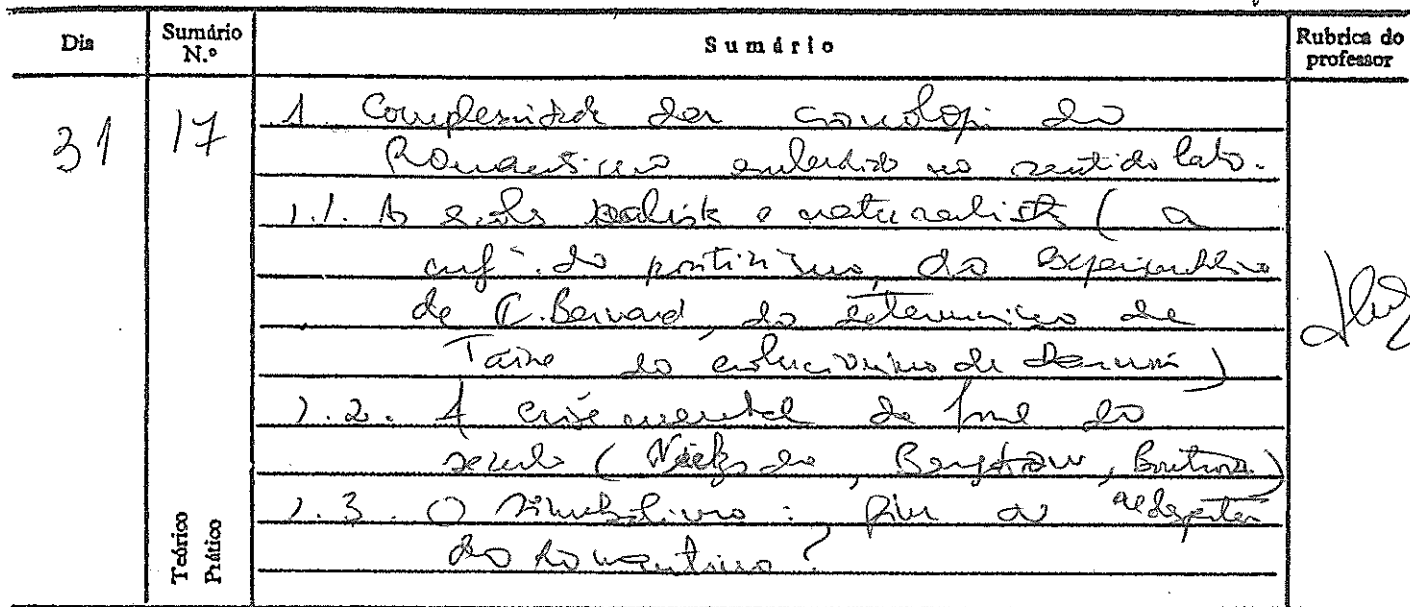 Dia
Sumário N.º
Sumário
Rubrica do professor
31
17
1. Complexidade da cronologia do
Romantismo entendido no sentido lato.
1.1. A escola realista e naturalista ( a
infª. do positivismo, do experimentalismo
de C. Bernard, do determinismo de
Taine do evolucionismo de Darwin )
1.2. A crise mental do fim do
século ( Nietzsche, Bergson, Boutroux )
1.3. O Simbolismo : fim ou
do Romantismo ?
Teórico
Prático